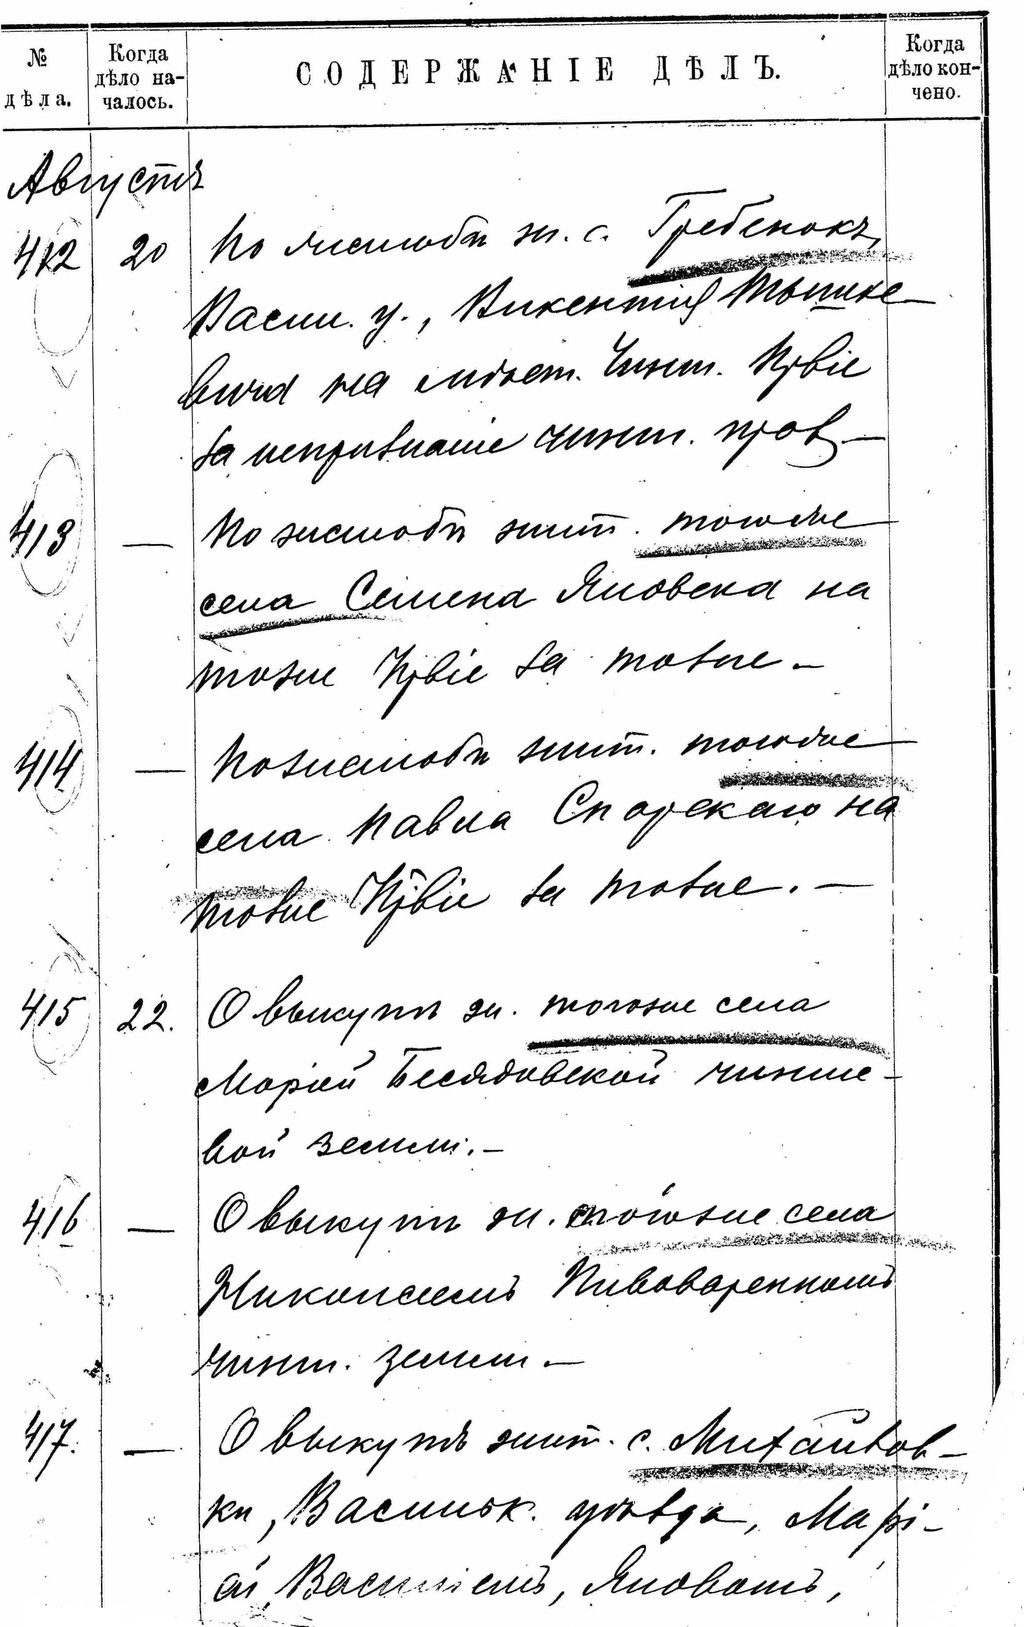 № дѣла.
Когда дѣло началось.
СОДЕРЖАНІЕ ДѢЛЪ.
Когда дѣло кончено.
Августъ
412 20 По жалобѣ ж. с. Гребенокъ,
Васил. у., Викентія Тышке-
вича на мѣст. Чинш. Пр᾿віе
за непризнаніе чинш. прав. —
413 — По жалобѣ жит. тогоже
села Семена Яновска на
тоже Пр᾿віе за тоже. —
414 — По жалобѣ жит. тогоже
села Павла Скорскаго на
тоже Пр᾿віе за тоже. —
415 22. О выкупѣ ж. тогоже села
Маріей Бесядовской чинше-
вой земли. —
416 — О выкупѣ ж. тогоже села
Николаемъ Пивовареннымъ
чинш. земли —
417. — О выкупѣ жит. с. Михайлов-
ки, Васильк. уѣзда, Марі-
ей, Василіемъ, Яковомъ,